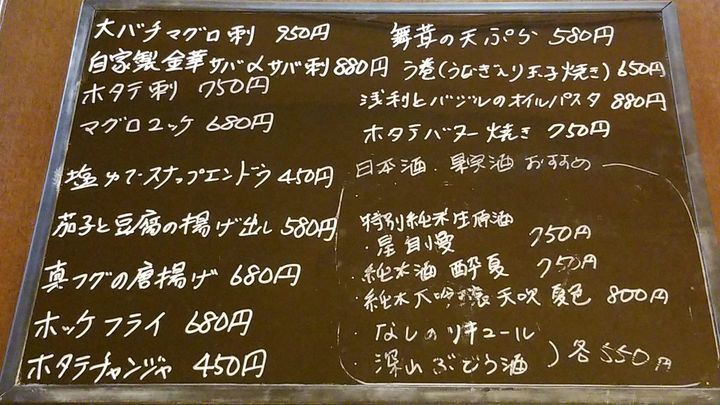 大バチマグロ刺 950円
自家製金華サバ〆サバ刺 880円
ホタテ刺 750円
マグロユッケ 680円
塩ゆでスナップエンドウ 450円
茄子と豆腐の揚げ出し 580円
真フグの唐揚げ 680円
ホッケフライ 680円
ホタテチャンジャ 450円
舞茸の天ぷら 580円
う巻(うなぎ入り玉子焼き) 650円
浅利とバジルのオイルパスタ 880円
ホタテバター焼き 750円
日本酒・果実酒 おすすめ
特別純米生原酒
・星自慢 750円
純米酒 酔夏 750円
・純米大吟醸 天吹 夏色 800円
・なしのリキュール
・深山ぶどう酒 ) 各550円